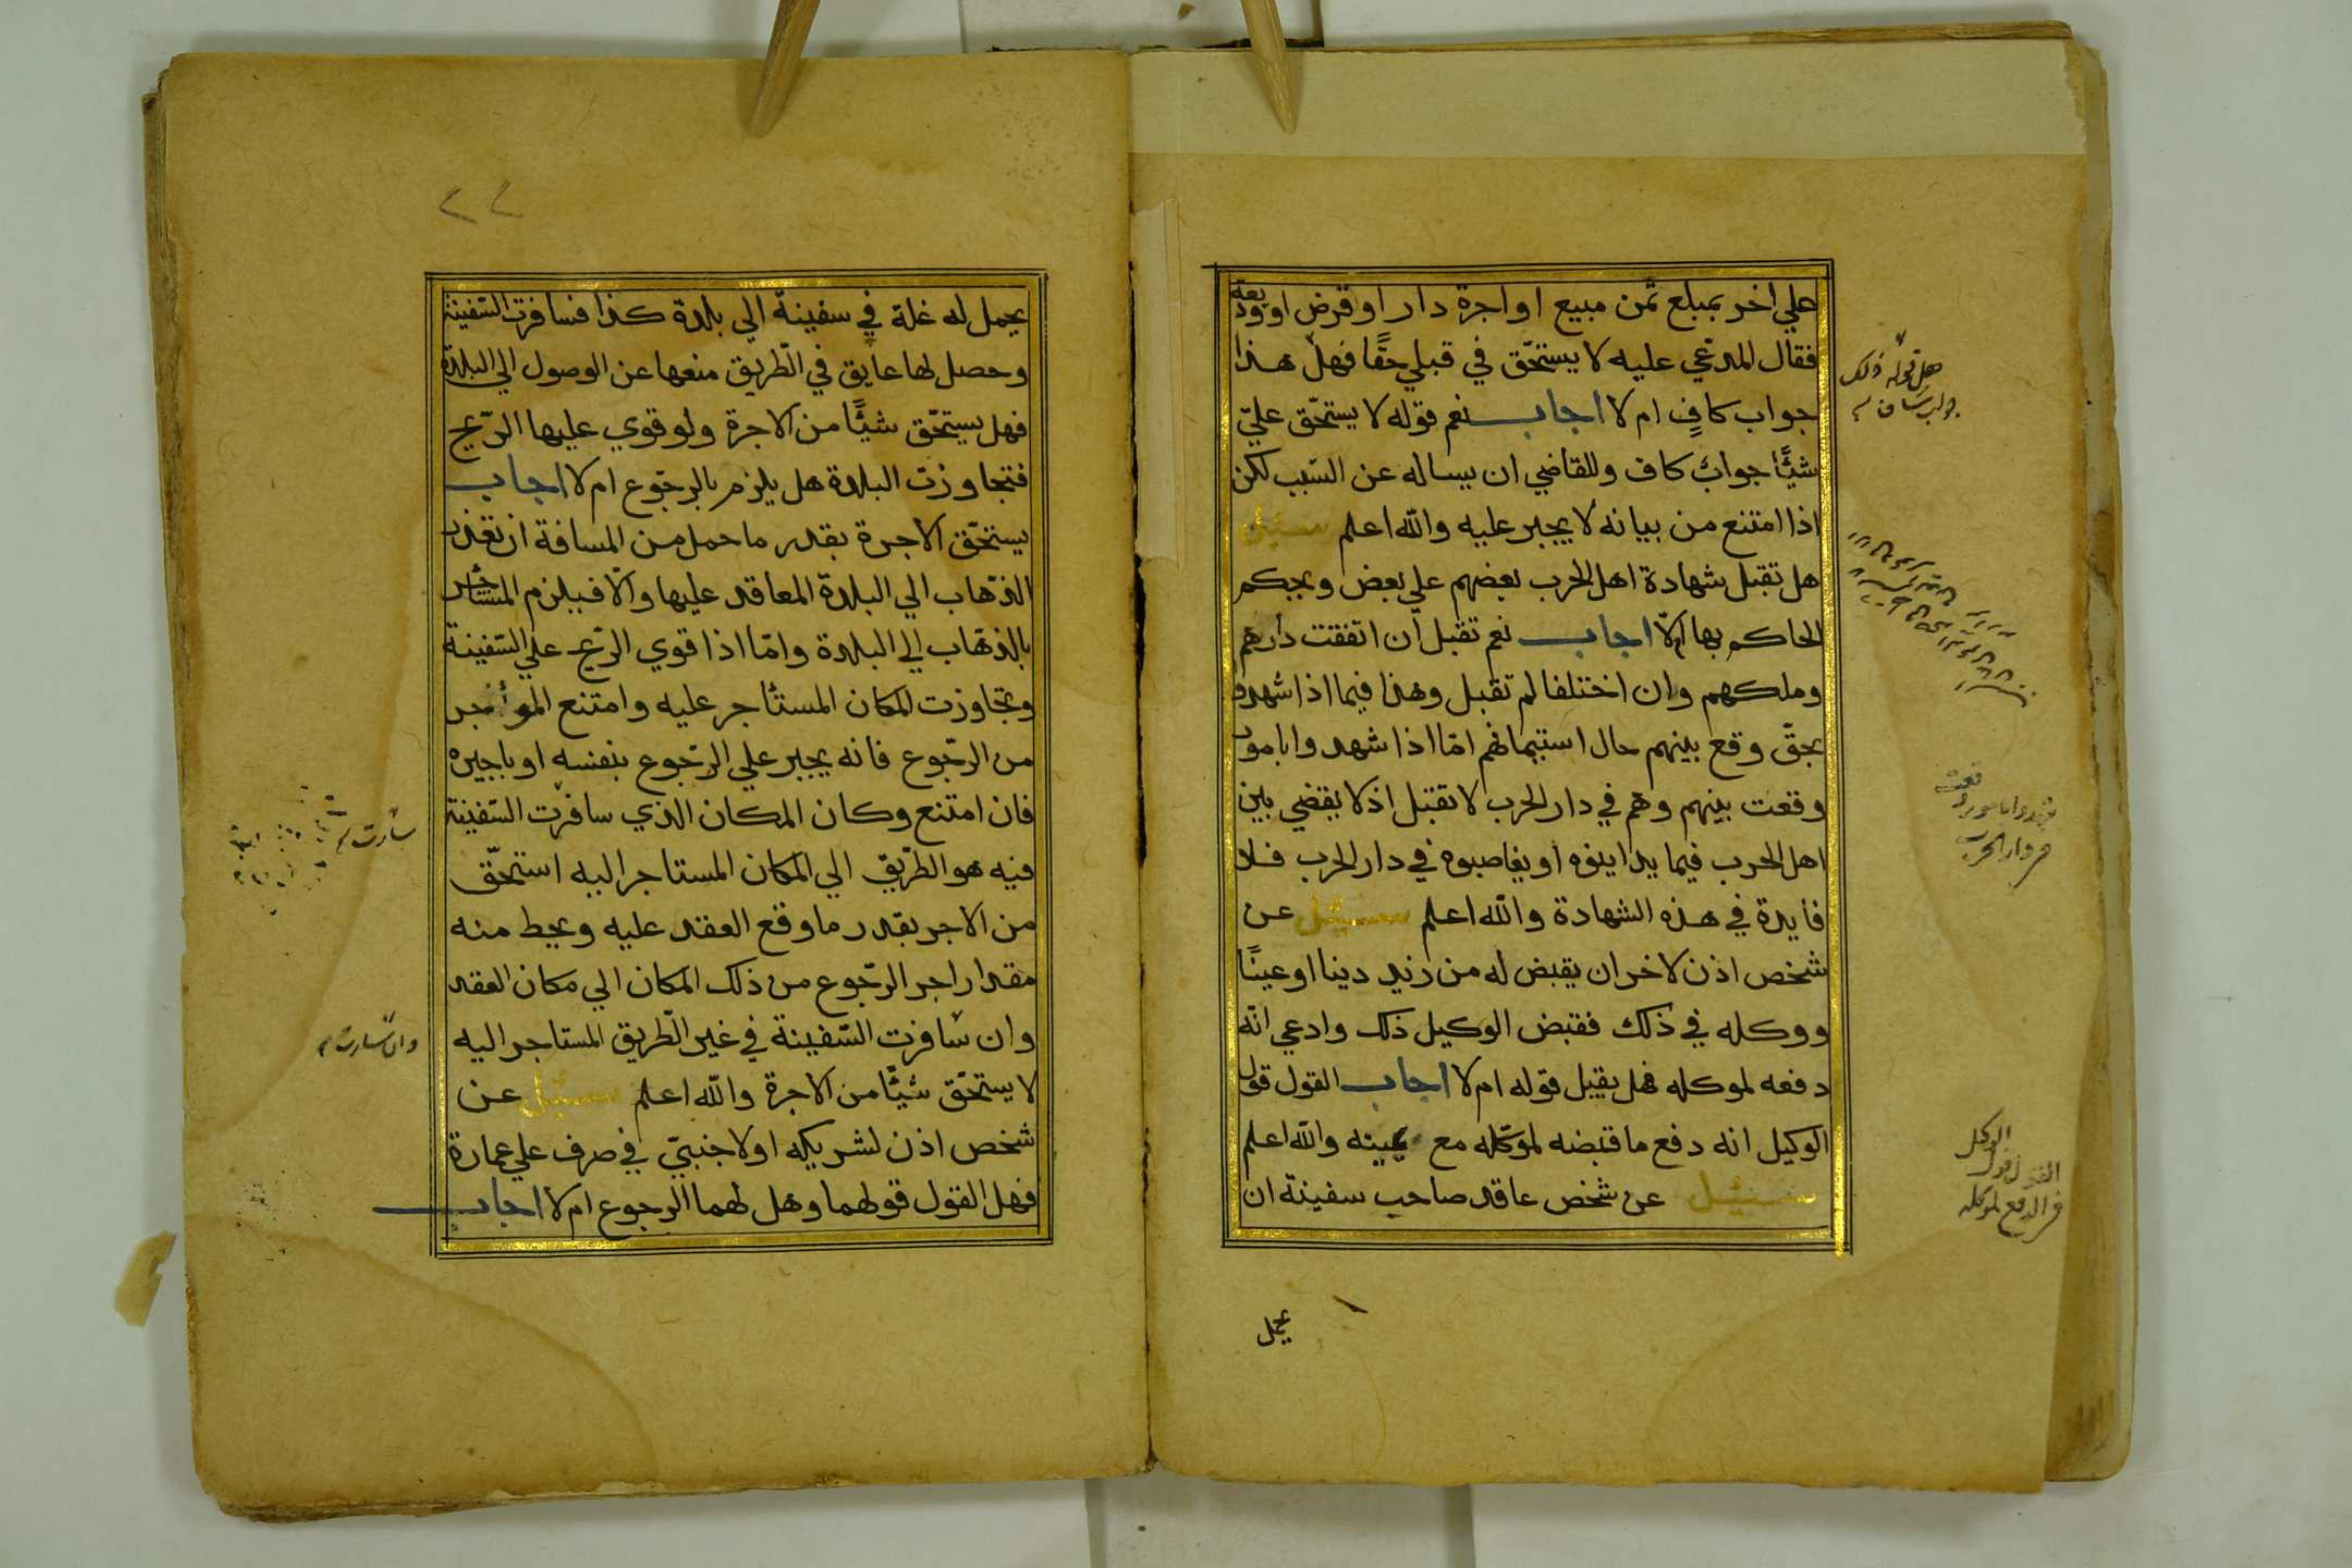 علي اخر بمبلغ ثمن مبيع او اجرة دار او قرض او وديعة
فقال المدعي عليه لا يستحّق في قبلي حقًا فهل هذا
جواب كافٍ ام لا اجاب نعم قوله لا يستحّق عليّ
شئًا جوابٌ كاف وللقاضي ان يساله عن السّبب لكن
اذا امتنع من بيانه لا يجبر عليه والله اعلم سئيل
هل تقبل شهادة اهل الحرب بعضهم علي بعض ويحكم
الحاكم بها ام لا اجاب نعم تقبل ان اتفقت دارهم
وملكهم وان اختلفا لم تقبل وهذا فيما اذا شهدو
بحقّ وقع بينهم حال استيمانهم امّا اذا شهدوا بامور
وقعت بينهم وهم في دار الحرب لا تقتبل اذ لا يقضي بين
اهل الحرب فيما يداينوه او يغاصبوه في دار الحرب فلا
فايدة في هذه الشهادة والله اعلم سئيل عن
شخص اذن لاخر ان يقبض له من زيد دينا او عينًا
ووكله في ذلك فقبض الوكيل ذلك وادعي انّه
دفعه لموكله فهل يقبل قوله ام لا اجاب القول قول
الوكيل انه دفع ما قبضه لموكّله مع يمينه والله اعلم
سئيل عن شخص عاقد صاحب سفينة ان
هل قوله ذلك
جواب كاف م
في دار الحرب
القول قول الوكيل
في الدفع لموكله
يحمل
٢٢
يحمل له غلة في سفينة الي بلدة كذا فسافرت السّفينة
وحصل لها عايق في الطّريق منعها عن الوصول الي البلدة
فهل يستحّق شئًا من الاجرة ولو قوي عليها الرّيح
فتجاوزت البلدة هل يلزم بالرجّوع ام لا اجاب
يستحّق الاجرة بقدر ما حمل من المسافة ان تعذر
الذّهاب الي البلدة المعاقد عليها والّا فيلزم المستاجر
بالذّهاب الي البلدة وامّا اذا قوي الرّيح علي السّفينة
وتجاوزت المكان المستٔاجر عليه وامتنع المؤجر
من الرجّوع فانه يجبر علي الرجّوع بنفسه او باجيره
فان امتنع وكان المكان الذي سافرت السّفينة
فيه هو الطّريق الي المكان المستاجر اليه استحّق
من الاجر بقدر ما وقع العقد عليه ويحط منه
مقدار اجر الرجّوع من ذلك المكان الي مكان العقد
وان سافرت السّفينة في غير الطّريق المستاجر اليه
لا يستحّق شئًا من الاجرة والله اعلم سئيل عن
شخص اذن لشريكه او لاجنبيّ في صرف علي عمارة
فهل القول قولهما وهل لهما الرجوع ام لا اجاب
سارت م
وان سارت م